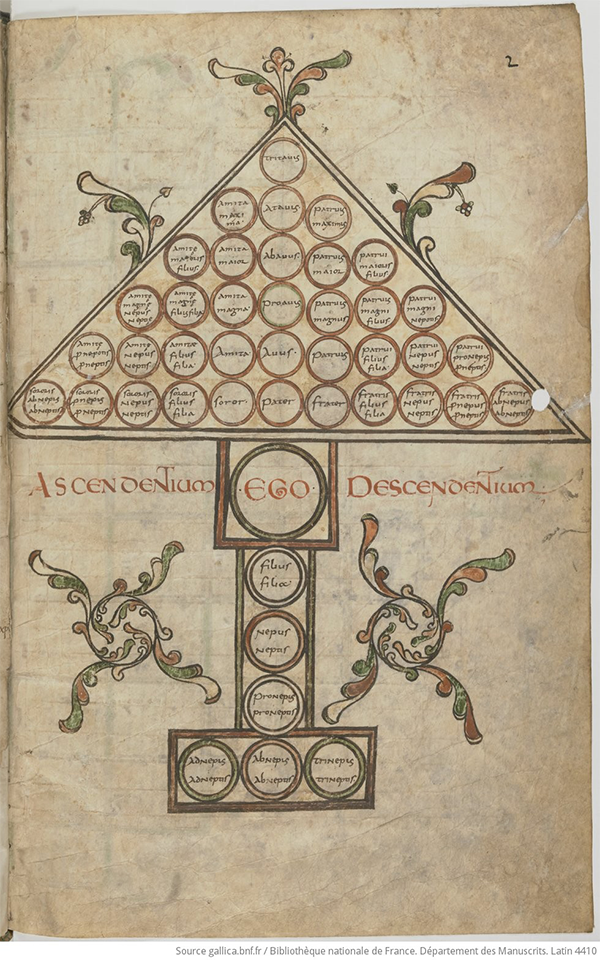 2
tritavis
Amita
maxi
ma·
Atavis
patruis
maximus
Amite
maioris
filius
Amita
maior
Abavus·
patruus
maior
patrui
maioris
filius
Amite
magne
Nepus
Neptis
Amite
magne
filius filia
Amita
magna·
proavis
patruus
magnus
patrui
magni
filius
patrui
magni
Nepotis
Amite
proneptis
pneptis
Amite
Nepus
Neptis
Amitae
filius
filia
Amita
Avus·
patruus
patrui
filius
filia
patrui
Nepus
Neptis
patrui
pronepis
pneptis
sororis
abnepis
abneptis
sororis
pnepis
pneptis
sororis
Nepus
Neptis
sororis
filius
filia
soror·
pater
frater
fratris
filius
filia
fratris
nepus
neptis
fratris
pnepis
pneptis
fratris
abNepis
abNeptis
AscendenTium ·EGO· DescendenTium
filius
filiae
Nepus
Neptis
pronepis
proneptis
Adnepis
Adneptis
Abnepis
Abneptis
trinepis
trineptis
Source gallica.bnf.fr / Bibliothèque nationale de France. Département des Manuscrits. Latin 4410